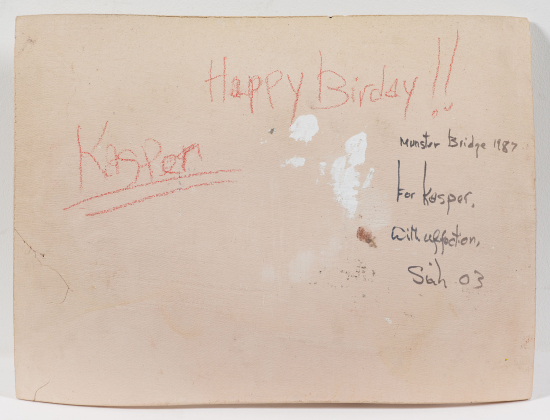 Happy Birday!!
Kasper
Munster Bridge 1987
For Kasper.
With affection,
Siah 03